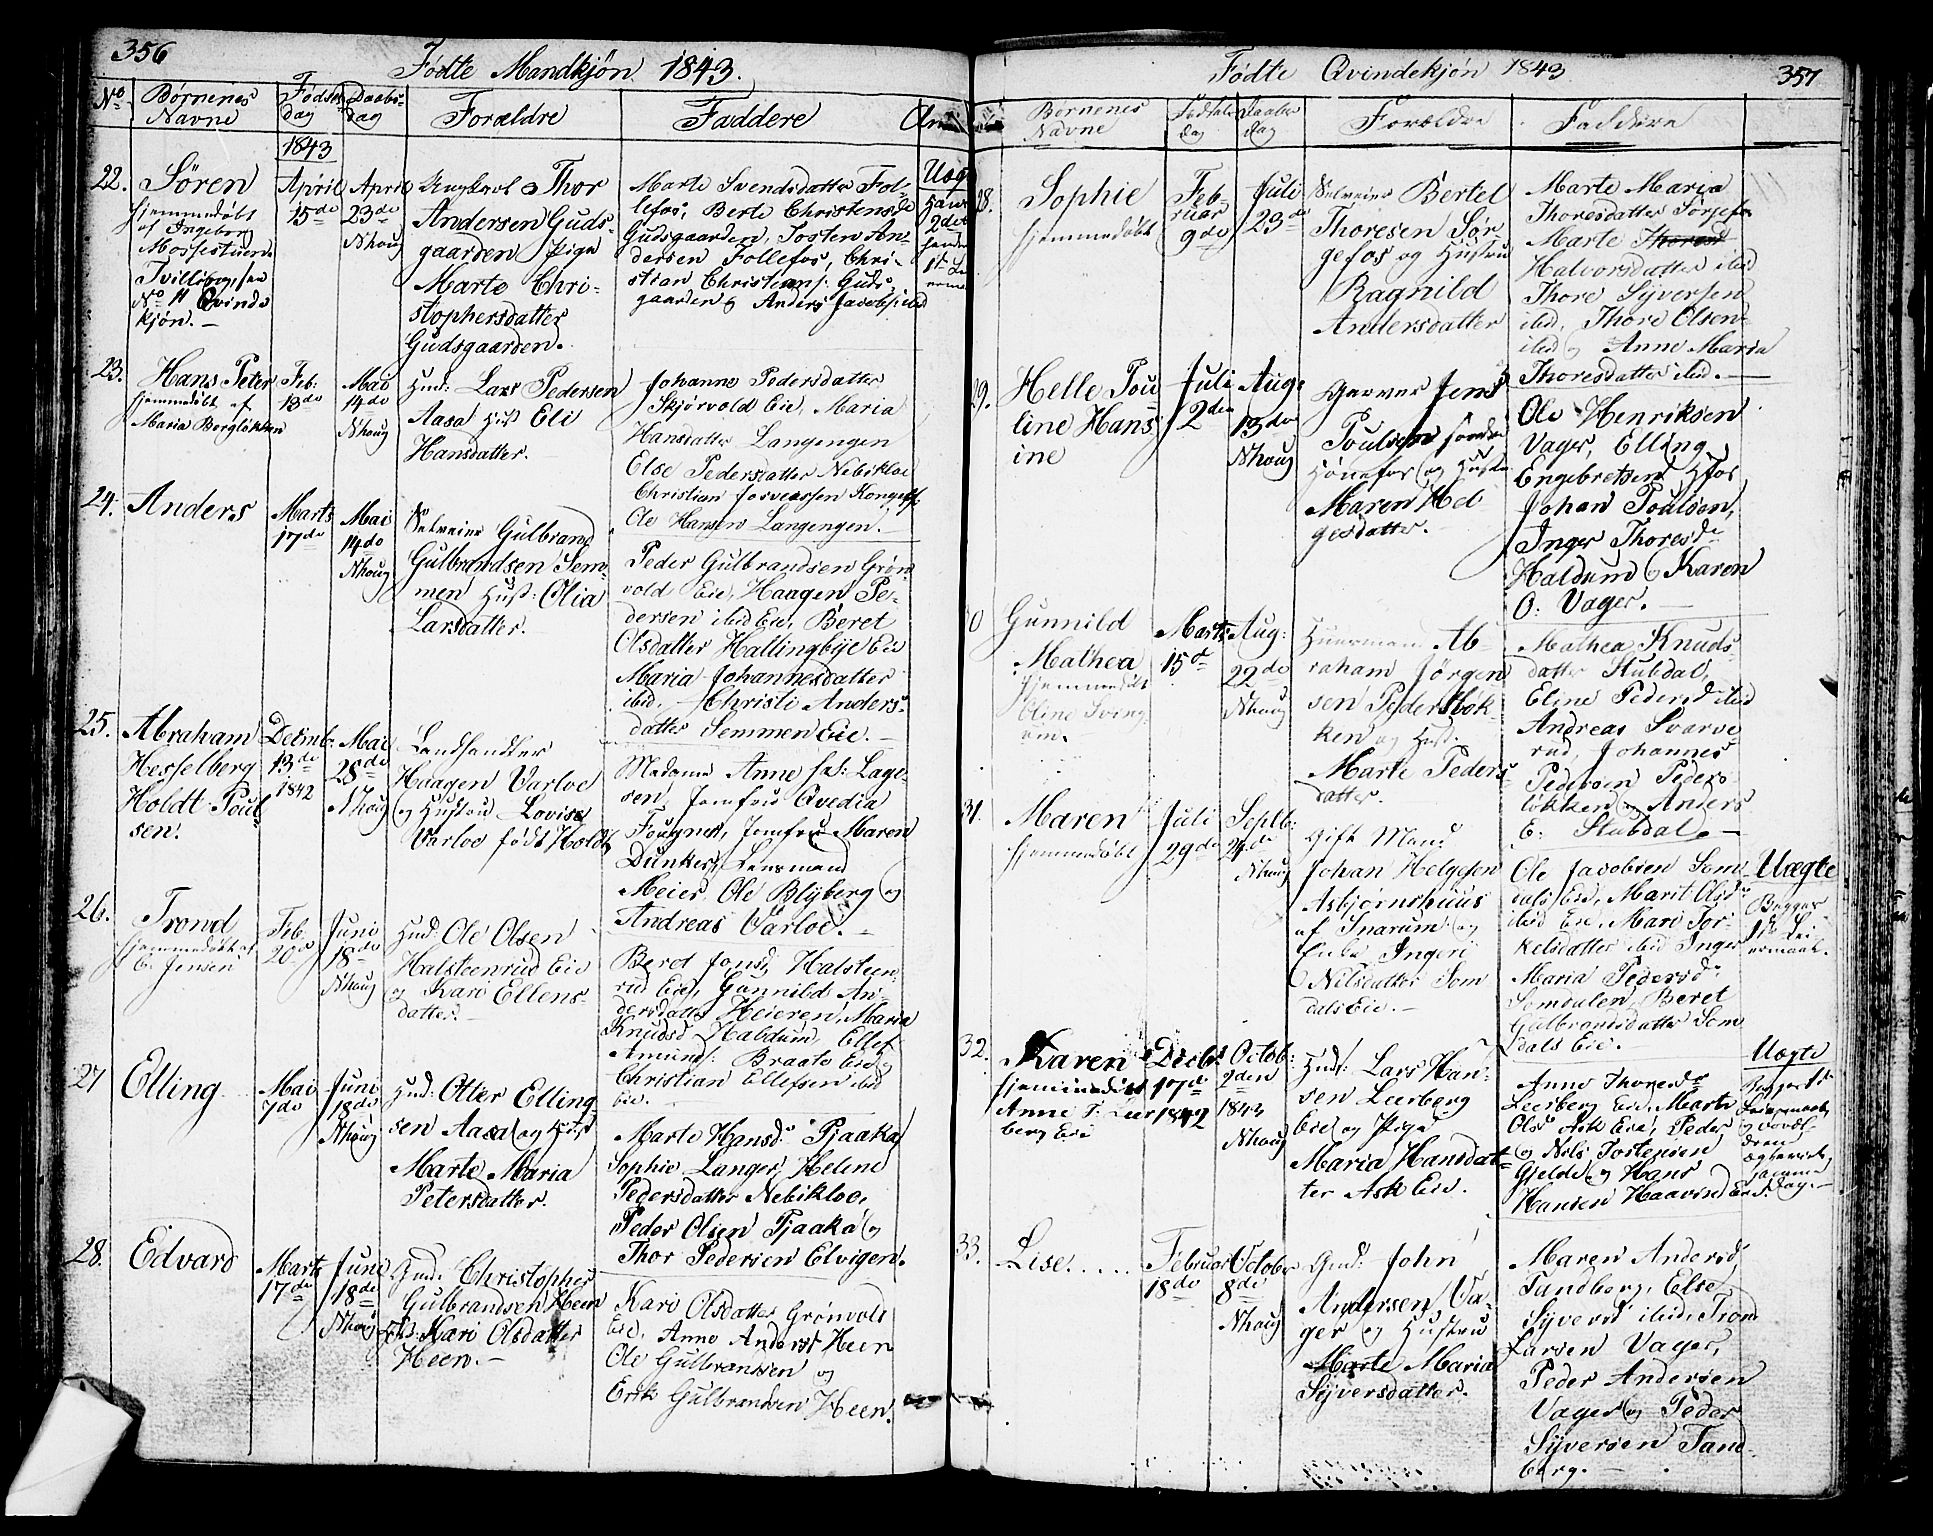 356
Fødte Mandkjøn 1843.
No Børnenes Navne
Fødsels dag
Daabs dag
Forældre
Faddere
1843
22.
Søren
hjemmedøbt
af Ingeborg
Tvilling, see
No 11 Qvinde
kjøn.
April
15de
April
23de
Nhoug
Ungkarl Thor
Andersen Guds-
gaarden Pige
Marte Chri-
stophersdatter
Gudsgaarden.
Marte Svendsdatter Fol-
lefos, Berte Christensd
Gudsgaarden, Josten An-
dersen Follefos, Chri-
stian Christians: Guds
gaarden og Anders Jacobs ibid
23.
Hans Peter
hjemmedøbt af
Maria Bergløkken
Feb:
13de
Mai
14de
Nhoug
Huusm: Lars Pedersen
Aasa Hust Eli
Hansdatter.
Johanne Pedersdatter
Skjørvold Eie, Maria
Hansdatter Langengen
Else Pedersdatter Nebikloe
Ole Hansen Langengen.
24.
Anders
Marts
17de
Mai
14de
Nhoug
Selveier Gulbrand
Gulbrandsen Sem-
men Hust: Olia
Larsdatter.
Peder Gulbrandsen Grøn-
vold Eie, Haagen Pe-
dersen ibid Eie, Beret
Olsdatter Hallingbye Eie
Maria Johannesdatter
ibid. Christi Anders-
datter Semmen Eie.
25.
Abraham
Hesselberg
Holdt Poul-
sen.
Decmb:
13de
1842
Mai
28de
Nhoug
Landhandler
Haagen Varloe
og Hustru Lovise
Varloe født Holdt
Madame Anne sal: Lage-
sen, Jomfru Qvedia
Fougner, Jomfru Maren
Dunker, Lensmand
Meier, Ole Blyberg og
Andreas Varloe.
26.
Trond
hjemmedøbt af
E. Jensen
Feb
20de
Juni
18de
Nhoug
Huusm: Ole Olsen
Halsteenrud Eie
og Kari Ellens-
datter.
Berot Jonsd, Halsteen-
rud Eie, Gunnild An-
dersdatter Heieren, Maria
Knudsd Haldum, Ellef
Amunds: Braate Eie
Christian Ellefsen ibid
Eie.
27
Elling
Mai
7de
Juni
18de
Nhoug
Huusm: Otter Elling-
sen Aasa og Hust
Marte Maria
Petersdatter.
Marte Hansd: Tjaaka
Sophie Langer, Helene
Pedersdatter Nebikloe,
Peder Olsen Tjaaka og
Thor Pedersen Elvigen.
28.
Edvard
Marts
17de
Juni
18de
Nhoug
Huusm: Christopher
Gulbrandsen Heen
Hust: Kari Olsdatter
Heen.
Kari Olsdatter Grønvold
Eie, Anne Andersd Heen
Ole Gulbrandsen og
Erik Gulbrandsen Heen.
357
Fødte Qvindekjøn 1843
Børnenes
Navne
Fødsels
dag
Daabs
dag
Forældre
Faddere
28.
Sophie
hjemmedøbt
Feb-
ruar
9de
Juli
23de
Selveier Bertel
Thoresen Sør-
gefos og Hustru
Ragnild
Andersdatter
Marte Maria
Thoresdatter Sørgefos
Marte
Halvorsdatter ibid
Thore Syversen
ibid, Thore Olsen
ibid og Anne Maria
Thoresdatter ibid.
29.
Helle Pou
line Hans
ine
Juli
2den
Aug:
13de
Nhoug
Garver Jens
Poulsen søndre
Hønefos og Hustru
Maren Hel
gesdatter.
Ole Henriksen
Vager, Elling
Engebretsen Hfos
Johan Poulsen,
Inger Thoresd
Haldum og Karen
O: Vager.
30
Gunnild
Mathea
hjemmedøbt
Marts
15de
Aug:
22de
Nhoug
Huusmand Ab-
raham Jørgen
sen Pedersløk-
ken og Hust:
Marte Peders-
datter.
Mathea Knuds-
datter Stubdal,
Eline Pedersd ibid
Andreas Svarve
rud, Johannes
Pedersen Peders
løkken og Anders
E: Stubdal.
31.
Maren
hjemmedøbt
Juli
29de
Septb:
24de
Nhoug
Gift Mand
Johan Helgesen
Asbjørnshuus
af Snarum og
Enke Ingeri
Nilsdatter Som
dals Eie.
Ole Jacobsen Som
dals Eie, Marit Olsd
ibid Eie, Mari Tor-
kelsdatter ibid Inger
Maria Pedersd
Somdalen, Beret
Gulbrandsdatter Som
dals Eie.
Uægte
Begges
1ste Lei
ermaal.
32.
Karen
hjemmedøbt
Anne T. Leer
berg Eie
Decbr
17de
1842
Octob:
2den
1843
Nhoug
Huusm: Lars Han-
sen Leerberg
Eie og Pige
Maria Hansdat-
ter Ask Eie.
Anne Thoresd
Leerberg Eie, Marte
Ols Ask Eie, Peder
og Nils Tostensen
Gjelde og Hans
Hansen Haavind Eie.
Uægte
33.
Lise.....
Februar
18de
October
8de
Nhoug
Gmd: John
Andersen Va-
ger og Hustru
Marte Maria
Syversdatter.
Maren Andersd,
Tandberg, Else
Syversd ibid, Trond
Larsen Vager,
Peder Andersen
Vager og Peder
Syversen Tand-
berg.